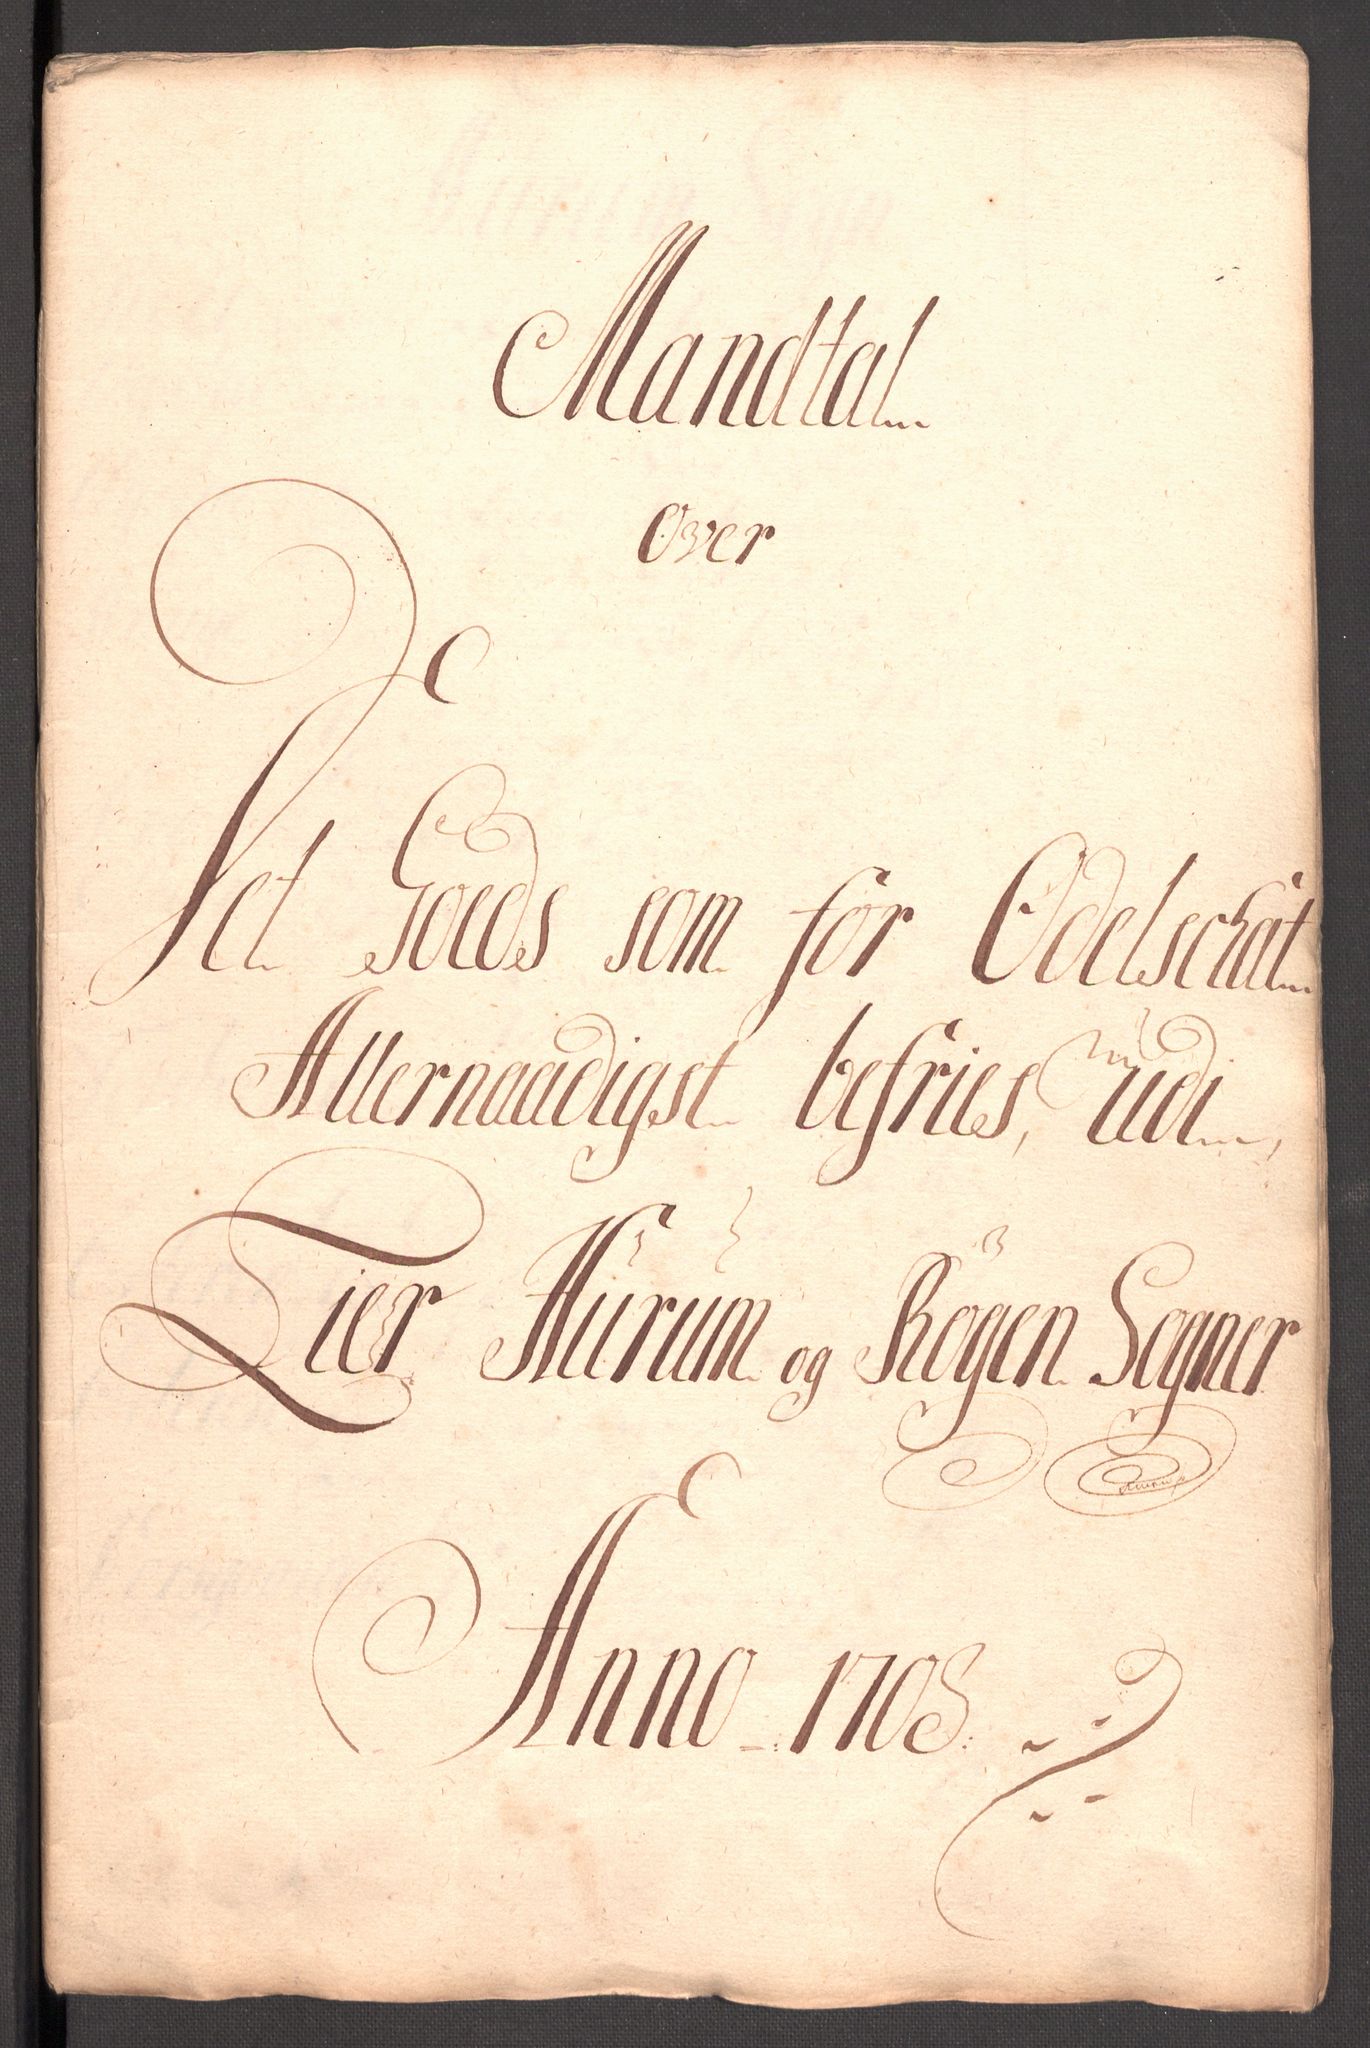 Mandtal
Over
Det Goeds som for Odelschat
Allernaadigst befries, üdi,
Lier Hürüm og Rögen Sogner
Anno 1708